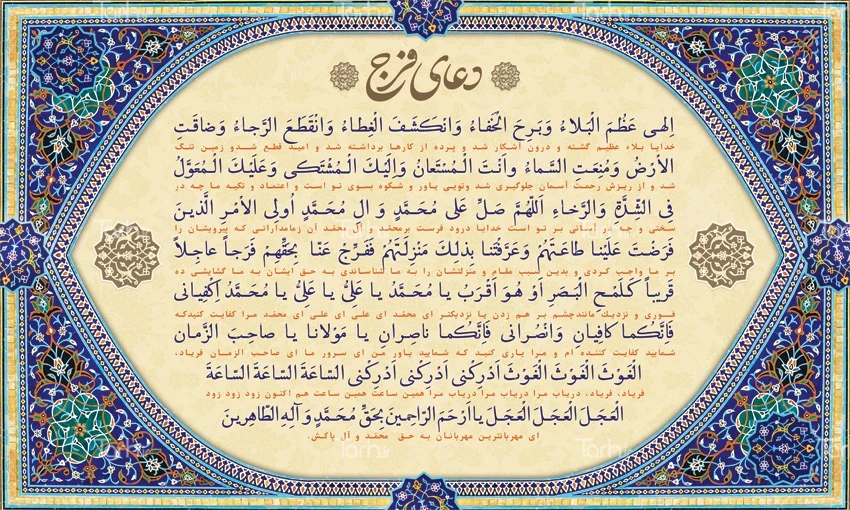 دعای فرج
اِلهی عَظُمَ الْبَلاءُ وَبَرِحَ الْخَفاءُ وَانْکَشَفَ الْغِطاءُ وَانْقَطَعَ الرَّجاءُ وَضاقَتِ
خدایا بلاء عظیم گشته و درون آشکار شد و پرده از کارها برداشته شد و امید قطع شدو زمین تنگ
الأرْضُ وَمُنِعَتِ السَّماءُ واَنْتَ الْمُسْتَعانُ وَاِلَیْکَ الْمُشْتَکی وَعَلَیْکَ الْمُعَوَّلُ
شد و از ریزش رحمت آسمان جلوگیری شد وتویی یاور و شکوه بسوی تو است و اعتماد و تکیه ما چه در
فِی الشِّدَّةِ وَالرَّخاءِ اَللّهُمَّ صَلِّ عَلی مُحَمَّدٍ وَ الِ مُحَمَّدٍ اُولِی الأمْرِ الَّذینَ
سختی و چه در آسانی بر تو است خدایا درود فرست برمحمد و آل محمد آن زمامدارانی که پیرویشان را
فَرَضْتَ عَلَیْنا طاعَتَهُمْ وَعَرَّفْتَنا بِذلِکَ مَنْزِلَتَهُمْ فَفَرِّجْ عَنّا بِحَقِّهِمْ فَرَجاً عاجِلاً
بر ما واجب کردی و بدین سبب مقام و منزلتشان را به ما شناساندی به حق ایشان به ما گشایشی ده
قَریباً کَلَمْحِ الْبَصَرِ اَوْ هُوَ اَقْرَبُ یا مُحَمَّدُ یا عَلِیُّ یا عَلِیُّ یا مُحَمَّدُ اِکْفِیانی
فوری و نزدیک مانندچشم بر هم زدن یا نزدیکتر ای محمد ای علی ای علی ای محمد مرا کفایت کنیدکه
فَاِنَّکُما کافِیانِ وَانْصُرانی فَاِنَّکُما ناصِرانِ یا مَوْلانا یا صاحِبَ الزَّمانِ
شمایید کفایت کننده ام و مرا یاری کنید که شمایید یاور من ای سرور ما ای صاحب الزمان فریاد،
الْغَوْثَ الْغَوْثَ الْغَوْثَ اَدْرِکْنی اَدْرِکْنی اَدْرِکْنی السّاعَةَ السّاعَةَ السّاعَةَ
فریاد، فریاد، دریاب مرا دریاب مرا دریاب مرا همین ساعت همین ساعت هم اکنون زود زود زود
الْعَجَلَ الْعَجَلَ الْعَجَلَ یااَرْحَمَ الرّاحِمینَ بِحَقِّ مُحَمَّدٍ وَ آلِهِ الطّاهِرینَ
ای مهربانترین مهربانان به حق محمد و آل پاکش.